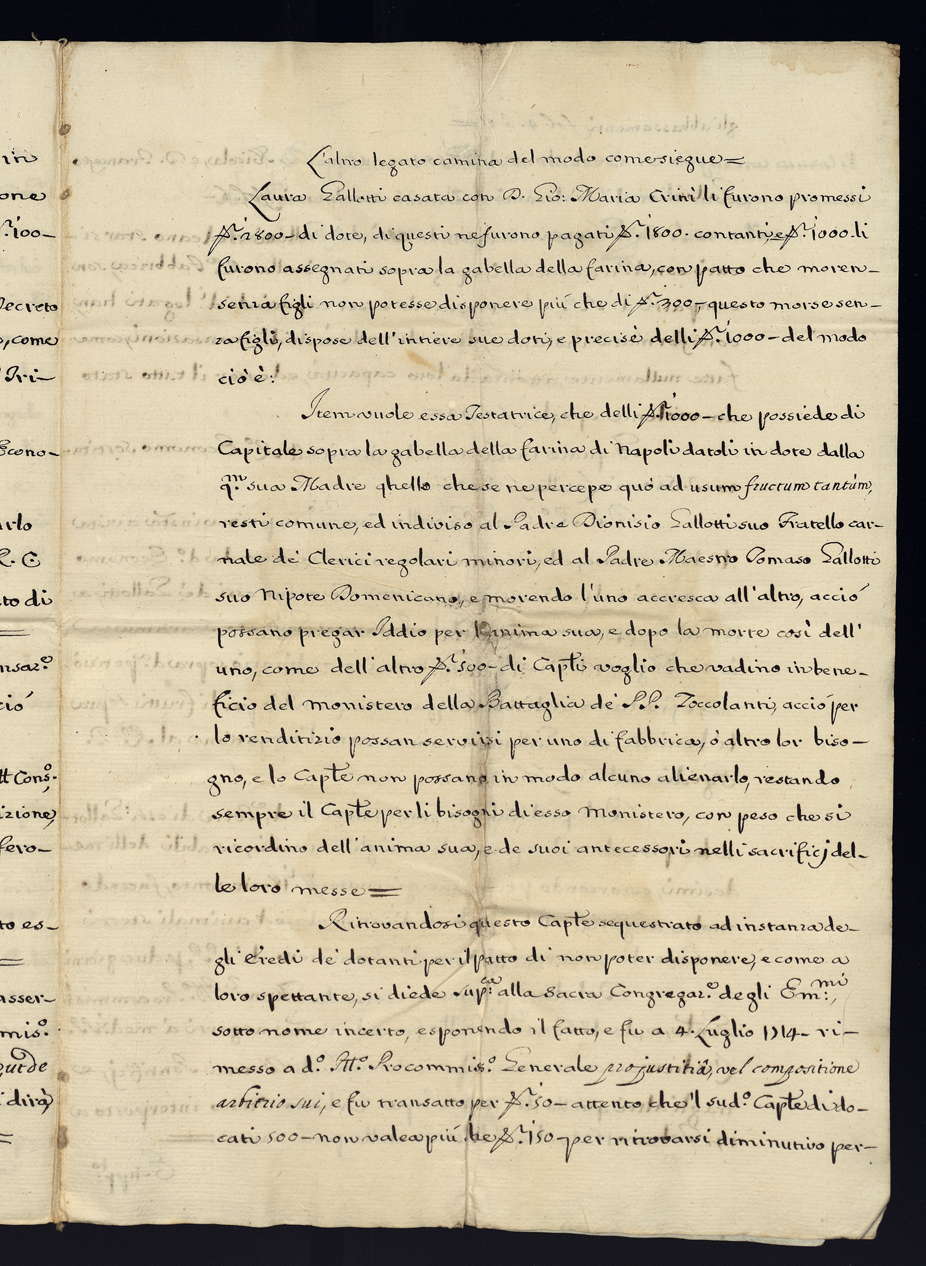 L'altro legato camina del modo come siegue=
Laura Gallotti casata con D. Gio: Maria Crini li furono promessi
2800- di dote, di questi ne furono pagati 1800. contanti, e 1000. li
furono assegnati sopra la gabella della farina, con patto che moren-
senza figli non potesse disponere più che di 300, questo morse sen-
za figli, dispose dell'intiere sue doti, e precisè delli 1000- del modo
ciò è:
Item vuole essa Testatrice, che delli 1000- che possiede di
Capitale sopra la gabella della farina di Napoli datoli in dote dalla
qm sua Madre qhello che se ne percepe quò ad usum fructum tantùm,
resti comune, ed indiviso al Padre Dionisio Gallotti suo Fratello car-
nale de' Clerici regolari minori, ed al Padre Maestro Tomaso Gallotti
suo Nipote Domenicano, e morendo l'uno accresca all'altro, acciò
possano pregar Iddio per l'anima sua, e dopo la morte così dell'
uno, come dell'altro 500- di Caplti voglio che vadino in bene-
ficio del monistero della Battaglia de' PP. Zoccolanti, acciò per
lo renditizio possan servirsi per uno di fabbrica, ò altro lor biso-
gno, e lo Caplte non possano in modo alcuno alienarlo, restando
sempre il Caplte per li bisogni di esso Monistero, con peso che si
ricordino dell'anima sua, e de suoi antecessori nelli sacrificj del-
le loro messe=
Ritrovandosi questo Caplte sequestrato ad instanza de-
gli eredi de' dotanti per il patto di non poter disponere, e come a
loro spettante, si diede supca alla Sacra Congregaz.e degli Emmi,
sotto nome incerto, esponendo il fatto, e fu a 4. Luglio 1714- ri-
messo a d.o Procommis.o Generale pro justitia, vel compositione
arbitrio sui, e fu transatto per 50- attento che 'l sud.o Caplte di do-
cati 500- non valea più he 150- per ritrovarsi diminutivo per-
one
100-
Decreto
, come
Tri-
Econo-
arlo
R. C
to di
nsaz.e
ciò
Cons.o
izione,
fero-
to es-
asser-
mis.o
i dirà